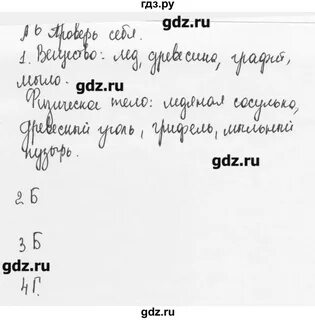 гдз.ру
№ 6 Проверь себя.
gdz.ru
1. Вещество: лёд, древесина, графит,
мыло.
gdz.ru
Физическое тело: ледяная сосулька,
древесный уголь, грифель, мыльный
пузырь.
gdz.ru
2 Б
gdz.ru
3 Б
gdz.ru
gdz.ru
4 Г.